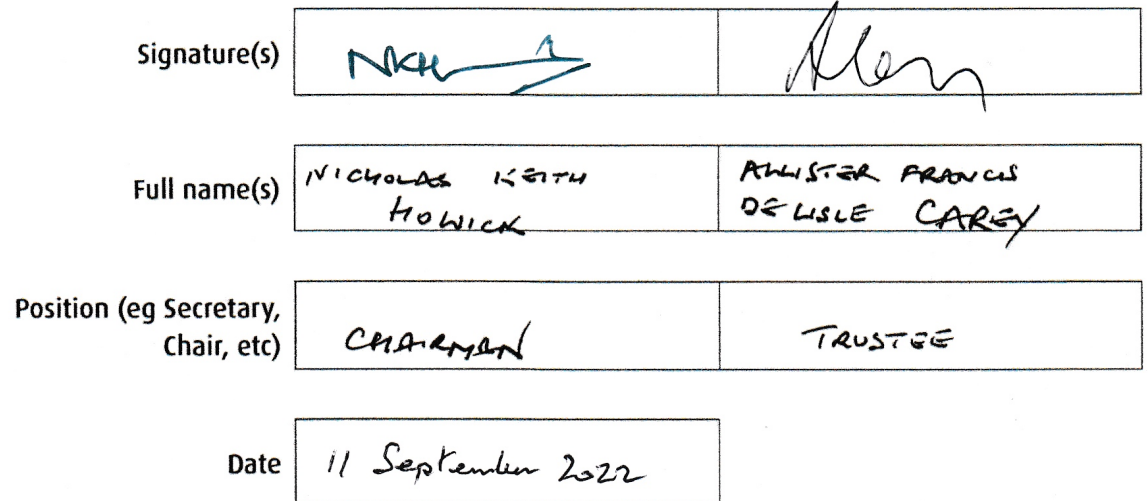 Signature(s)
Full name(s)
NICHOLAS KEITH
HOWICK
ALLISTER FRANCIS
DE LISLE CAREY
Position (eg Secretary,
Chair, etc)
CHAIRMAN
TRUSTEE
Date
11 September 2022